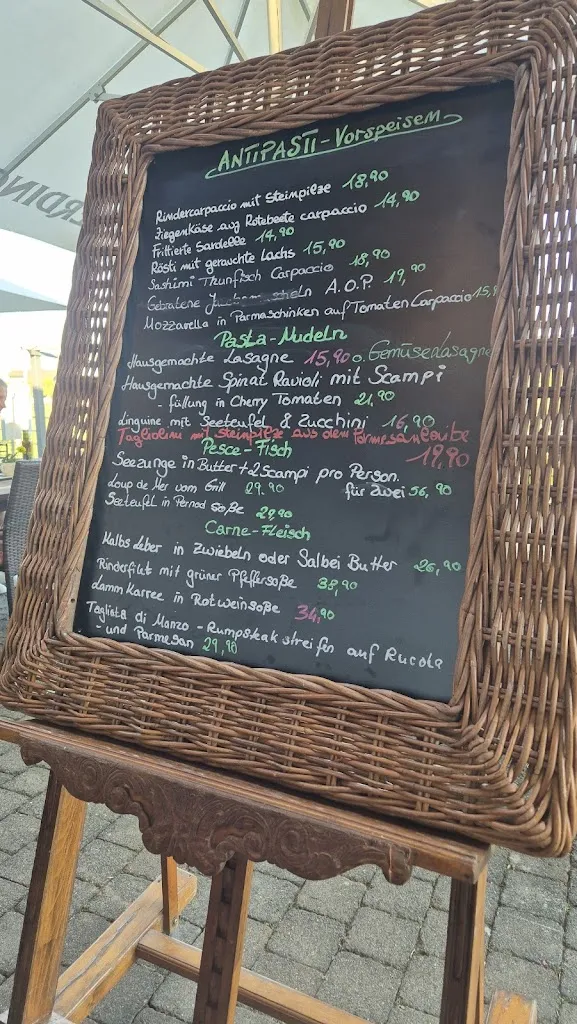 ERDING
ANTIPASTI - Vorspeisem
Rindercarpaccio mit Steinpilze 18,90
Ziegenkäse auf Rotebeete carpaccio 14,90
Frittierte Sardelle 14,90
Rösti mit gerauchte Lachs 15,90
Sashimi Thunfisch Carpaccio 18,90
Gebratene A.O.P. 19,90
Mozzarella in Parmaschinken auf Tomaten Carpaccio 15,9
Pasta - Nudeln
Hausgemachte Lasagne 15,90 o. Gemüselasagne
Hausgemachte Spinat Ravioli mit Scampi
- füllung in Cherry Tomaten 21,90
Linguine mit Seeteufel & Zucchini 16,90
Tagliolini mit Steinpilze aus dem Parmesanlaibe
19,90
Pesce - Fisch
Seezunge in Butter + 2 Scampi pro Person.
für zwei 56,90
Loup de Mer vom Grill 29.90
Seeteufel in Pernod soße 29,90
Carne - Fleisch
Kalbs Leber in Zwiebeln oder Salbei Butter 26,90
Rinderfilet mit grüner Pfeffersoße 38,90
Lamm Karree in Rotweinsoße 34,90
Tagliata di Manzo - Rumpsteak streifen auf Rucola
- und Parmesan 29,90